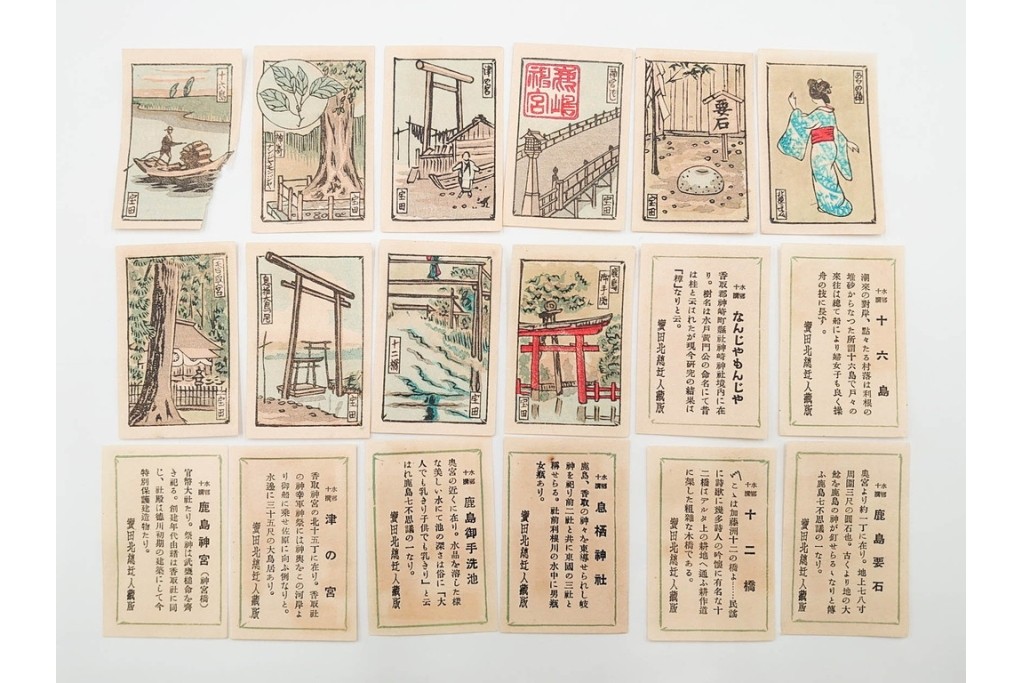 十六島
室田
神崎ナンジャモンジャ
室田
津の宮
室田
神宮橋
鹿嶋神宮
室田
要石
室田
あやめ踊
香取宮
室田
息栖大鳥居
室田
十二橋
室田
鹿島
御手洗
室田
水郷
十讃
なんじやもんじや
香取郡神崎町縣社神崎神社境内に在
り。樹名は水戸黄門公の命名にて昔
は桂と云はれたが現今研究の結果は
『樟』なりと云。
寳田北總辻人藏版
水郷
十讃
十六島
潮來の對岸、點々たる村落は利根の
堆砂からなつた所謂十六島で戸々の
來往は總て船により婦女子も良く操
舟の技に長ず。
寳田北總辻人藏版
水郷
十讃
鹿島神宮（神宮橋）
官幣大社たり。祭神は武甕槌命を齊
き祀る。創建年代由緒は香取社に同
じ、社殿は德川初期の建築にして今
特別保護建造物たり。
寳田北總辻人藏版
水郷
十讃
津の宮
香取神宮の北十五丁に在り。香取社
の神幸軍神祭には神輿をこの河岸よ
り御船に乗せ佐原に向ふ例なりと。
水邊に三十五尺の大鳥居あり。
寳田北總辻人藏版
水郷
十讃
鹿島御手洗池
奥宮の近くに在り。水晶を溶した樣
な美しい水にて池の深さは俗に「大
人でも乳きり子供でも乳きり」と云
はれ鹿島七不思議の一なり。
寳田北總辻人藏版
水郷
十讃
息栖神社
鹿島、香取の神々を東導せられし岐
神を祀り前二社と共に東國の三社と
稱せらる。社前利根川の水中に男瓶
女瓶あり。
寳田北總辻人藏版
水郷
十讃
十二橋
〽こゝは加藤洲十二の橋よ……民謠
に詩歌に幾多詩人の吟懷に有名な十
二橋はデルタ上の耕地へ通ふ耕作道
に架した粗雜な木橋である。
寳田北總辻人藏版
水郷
十讃
鹿島要石
奥宮より約一丁に在り。地上七八寸
周圍三尺の圓石也。古くより地の大
鯰を鹿島の神が釘せらるゝなりと傳
ふ鹿島七不思議の一なり。
寳田北總辻人藏版